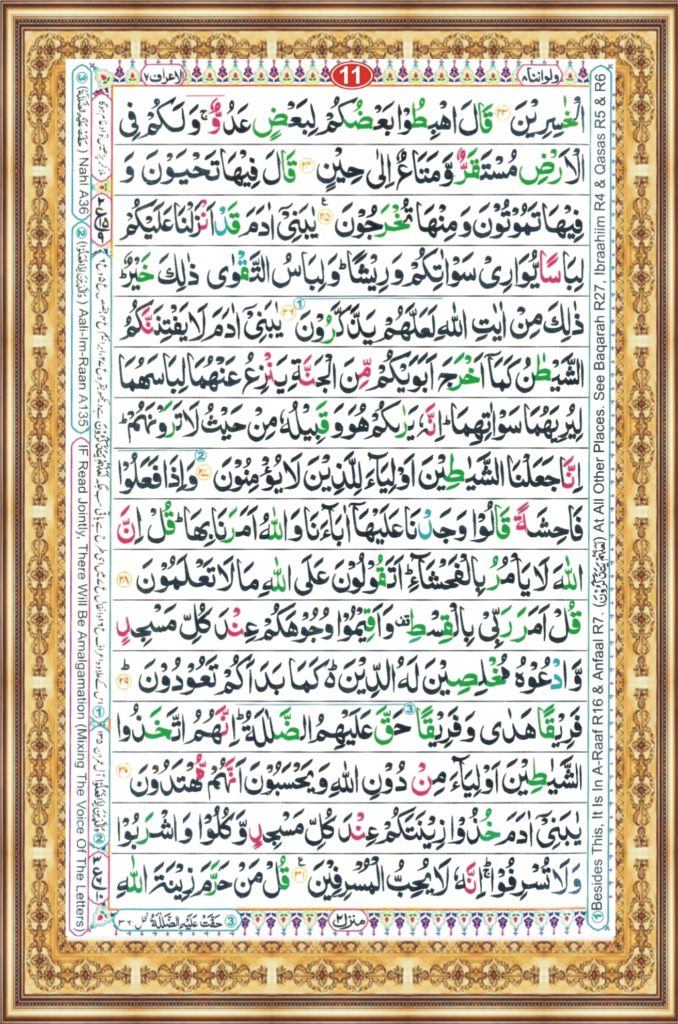 الاعراف ٧
11
ولواننا ٨
الْخٰسِرِيْنَ ﴿٢٣﴾ قَالَ اهْبِطُوْا بَعْضُكُمْ لِبَعْضٍ عَدُوٌّ ۚ وَلَكُمْ فِى
الْاَرْضِ مُسْتَقَرٌّ وَّمَتَاعٌ اِلٰى حِيْنٍ ﴿٢٤﴾ قَالَ فِيْهَا تَحْيَوْنَ وَ
فِيْهَا تَمُوْتُوْنَ وَمِنْهَا تُخْرَجُوْنَ ﴿٢٥﴾ يٰبَنِىْۤ اٰدَمَ قَدْ اَنْزَلْنَا عَلَيْكُمْ
لِبَاسًا يُّوَارِىْ سَوْاٰتِكُمْ وَرِيْشًا ؕ وَلِبَاسُ التَّقْوٰى ذٰلِكَ خَيْرٌ ؕ
ذٰلِكَ مِنْ اٰيٰتِ اللّٰهِ لَعَلَّهُمْ يَذَّكَّرُوْنَ ﴿٢٦﴾ يٰبَنِىْۤ اٰدَمَ لَا يَفْتِنَنَّكُمُ
الشَّيْطٰنُ كَمَاۤ اَخْرَجَ اَبَوَيْكُمْ مِّنَ الْجَنَّةِ يَنْزِعُ عَنْهُمَا لِبَاسَهُمَا
لِيُرِيَهُمَا سَوْاٰتِهِمَا ؕ اِنَّهٗ يَرٰىكُمْ هُوَ وَقَبِيْلُهٗ مِنْ حَيْثُ لَا تَرَوْنَهُمْ ؕ
اِنَّا جَعَلْنَا الشَّيٰطِيْنَ اَوْلِيَآءَ لِلَّذِيْنَ لَا يُؤْمِنُوْنَ ﴿٢٧﴾ وَاِذَا فَعَلُوْا
فَاحِشَةً قَالُوْا وَجَدْنَا عَلَيْهَاۤ اٰبَآءَنَا وَاللّٰهُ اَمَرَنَا بِهَا ؕ قُلْ اِنَّ
اللّٰهَ لَا يَاْمُرُ بِالْفَحْشَآءِ ؕ اَتَقُوْلُوْنَ عَلَى اللّٰهِ مَا لَا تَعْلَمُوْنَ ﴿٢٨﴾
قُلْ اَمَرَ رَبِّىْ بِالْقِسْطِ وَاَقِيْمُوْا وُجُوْهَكُمْ عِنْدَ كُلِّ مَسْجِدٍ
وَّادْعُوْهُ مُخْلِصِيْنَ لَهُ الدِّيْنَ ؕ كَمَا بَدَاَكُمْ تَعُوْدُوْنَ ؕ ﴿٢٩﴾
فَرِيْقًا هَدٰى وَفَرِيْقًا حَقَّ عَلَيْهِمُ الضَّلٰلَةُ ؕ اِنَّهُمُ اتَّخَذُوا
الشَّيٰطِيْنَ اَوْلِيَآءَ مِنْ دُوْنِ اللّٰهِ وَيَحْسَبُوْنَ اَنَّهُمْ مُّهْتَدُوْنَ ﴿٣٠﴾
يٰبَنِىْۤ اٰدَمَ خُذُوْا زِيْنَتَكُمْ عِنْدَ كُلِّ مَسْجِدٍ وَّكُلُوْا وَاشْرَبُوْا
وَلَا تُسْرِفُوْا ۚ اِنَّهٗ لَا يُحِبُّ الْمُسْرِفِيْنَ ﴿٣١﴾ قُلْ مَنْ حَرَّمَ زِيْنَةَ اللّٰهِ
منزل ٢
③ حَقَّتْ عَلَيْهِ الضَّلٰلَةُ نحل ٣٦
① Besides This, It Is In A-Raaf R16 & Anfaal R7. (لَعَلَّهُمْ يَذَّكَّرُوْنَ) At All Other Places. See Baqarah R27, Ibraahiim R4 & Qasas R5 & R6
③ (حَقَّتْ عَلَيْهِ الضَّلٰلَةُ) Nahl A36 ② (وَالَّذِيْنَ اِذَا فَعَلُوْا) Aali-Im-Raan A135 (IF Read Jointly, There Will Be Amalgamation (Mixing The Voice Of The Letters